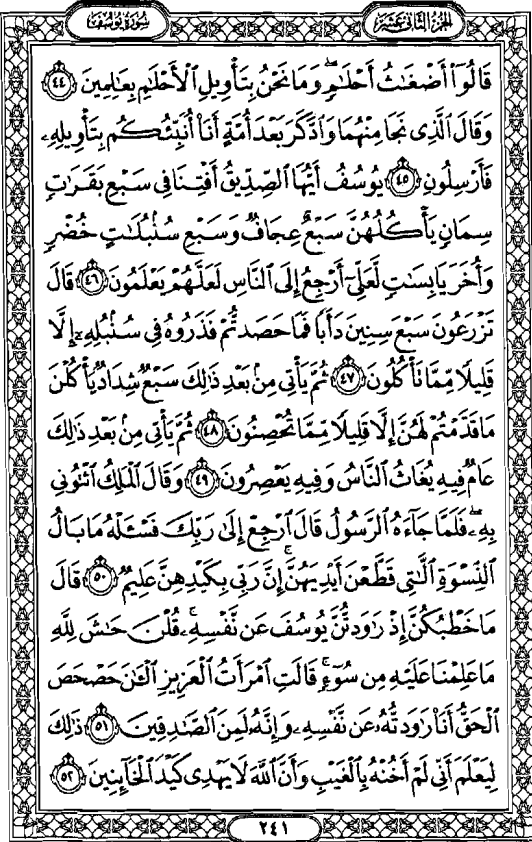 سورة يوسف
الجزء الثاني عشر
قَالُوٓا۟ أَضْغَـٰثُ أَحْلَـٰمٍ ۖ وَمَا نَحْنُ بِتَأْوِيلِ ٱلْأَحْلَـٰمِ بِعَـٰلِمِينَ ٤٤
وَقَالَ ٱلَّذِى نَجَا مِنْهُمَا وَٱدَّكَرَ بَعْدَ أُمَّةٍ أَنَا۠ أُنَبِّئُكُم بِتَأْوِيلِهِۦ
فَأَرْسِلُونِ ٤٥ يُوسُفُ أَيُّهَا ٱلصِّدِّيقُ أَفْتِنَا فِى سَبْعِ بَقَرَٰتٍ
سِمَانٍ يَأْكُلُهُنَّ سَبْعٌ عِجَافٌ وَسَبْعِ سُنۢبُلَـٰتٍ خُضْرٍ
وَأُخَرَ يَابِسَـٰتٍ لَّعَلِّىٓ أَرْجِعُ إِلَى ٱلنَّاسِ لَعَلَّهُمْ يَعْلَمُونَ ٤٦ قَالَ
تَزْرَعُونَ سَبْعَ سِنِينَ دَأَبًا فَمَا حَصَدتُّمْ فَذَرُوهُ فِى سُنۢبُلِهِۦٓ إِلَّا
قَلِيلًا مِّمَّا تَأْكُلُونَ ٤٧ ثُمَّ يَأْتِى مِنۢ بَعْدِ ذَٰلِكَ سَبْعٌ شِدَادٌ يَأْكُلْنَ
مَا قَدَّمْتُمْ لَهُنَّ إِلَّا قَلِيلًا مِّمَّا تُحْصِنُونَ ٤٨ ثُمَّ يَأْتِى مِنۢ بَعْدِ ذَٰلِكَ
عَامٌ فِيهِ يُغَاثُ ٱلنَّاسُ وَفِيهِ يَعْصِرُونَ ٤٩ وَقَالَ ٱلْمَلِكُ ٱئْتُونِى
بِهِۦ ۖ فَلَمَّا جَآءَهُ ٱلرَّسُولُ قَالَ ٱرْجِعْ إِلَىٰ رَبِّكَ فَسْـَٔلْهُ مَا بَالُ
ٱلنِّسْوَةِ ٱلَّـٰتِى قَطَّعْنَ أَيْدِيَهُنَّ ۚ إِنَّ رَبِّى بِكَيْدِهِنَّ عَلِيمٌ ٥٠ قَالَ
مَا خَطْبُكُنَّ إِذْ رَٰوَدتُّنَّ يُوسُفَ عَن نَّفْسِهِۦ ۚ قُلْنَ حَـٰشَ لِلَّهِ
مَا عَلِمْنَا عَلَيْهِ مِن سُوٓءٍ ۚ قَالَتِ ٱمْرَأَتُ ٱلْعَزِيزِ ٱلْـَٔـٰنَ حَصْحَصَ
ٱلْحَقُّ أَنَا۠ رَٰوَدتُّهُۥ عَن نَّفْسِهِۦ وَإِنَّهُۥ لَمِنَ ٱلصَّـٰدِقِينَ ٥١ ذَٰلِكَ
لِيَعْلَمَ أَنِّى لَمْ أَخُنْهُ بِٱلْغَيْبِ وَأَنَّ ٱللَّهَ لَا يَهْدِى كَيْدَ ٱلْخَآئِنِينَ ٥٢
٢٤١